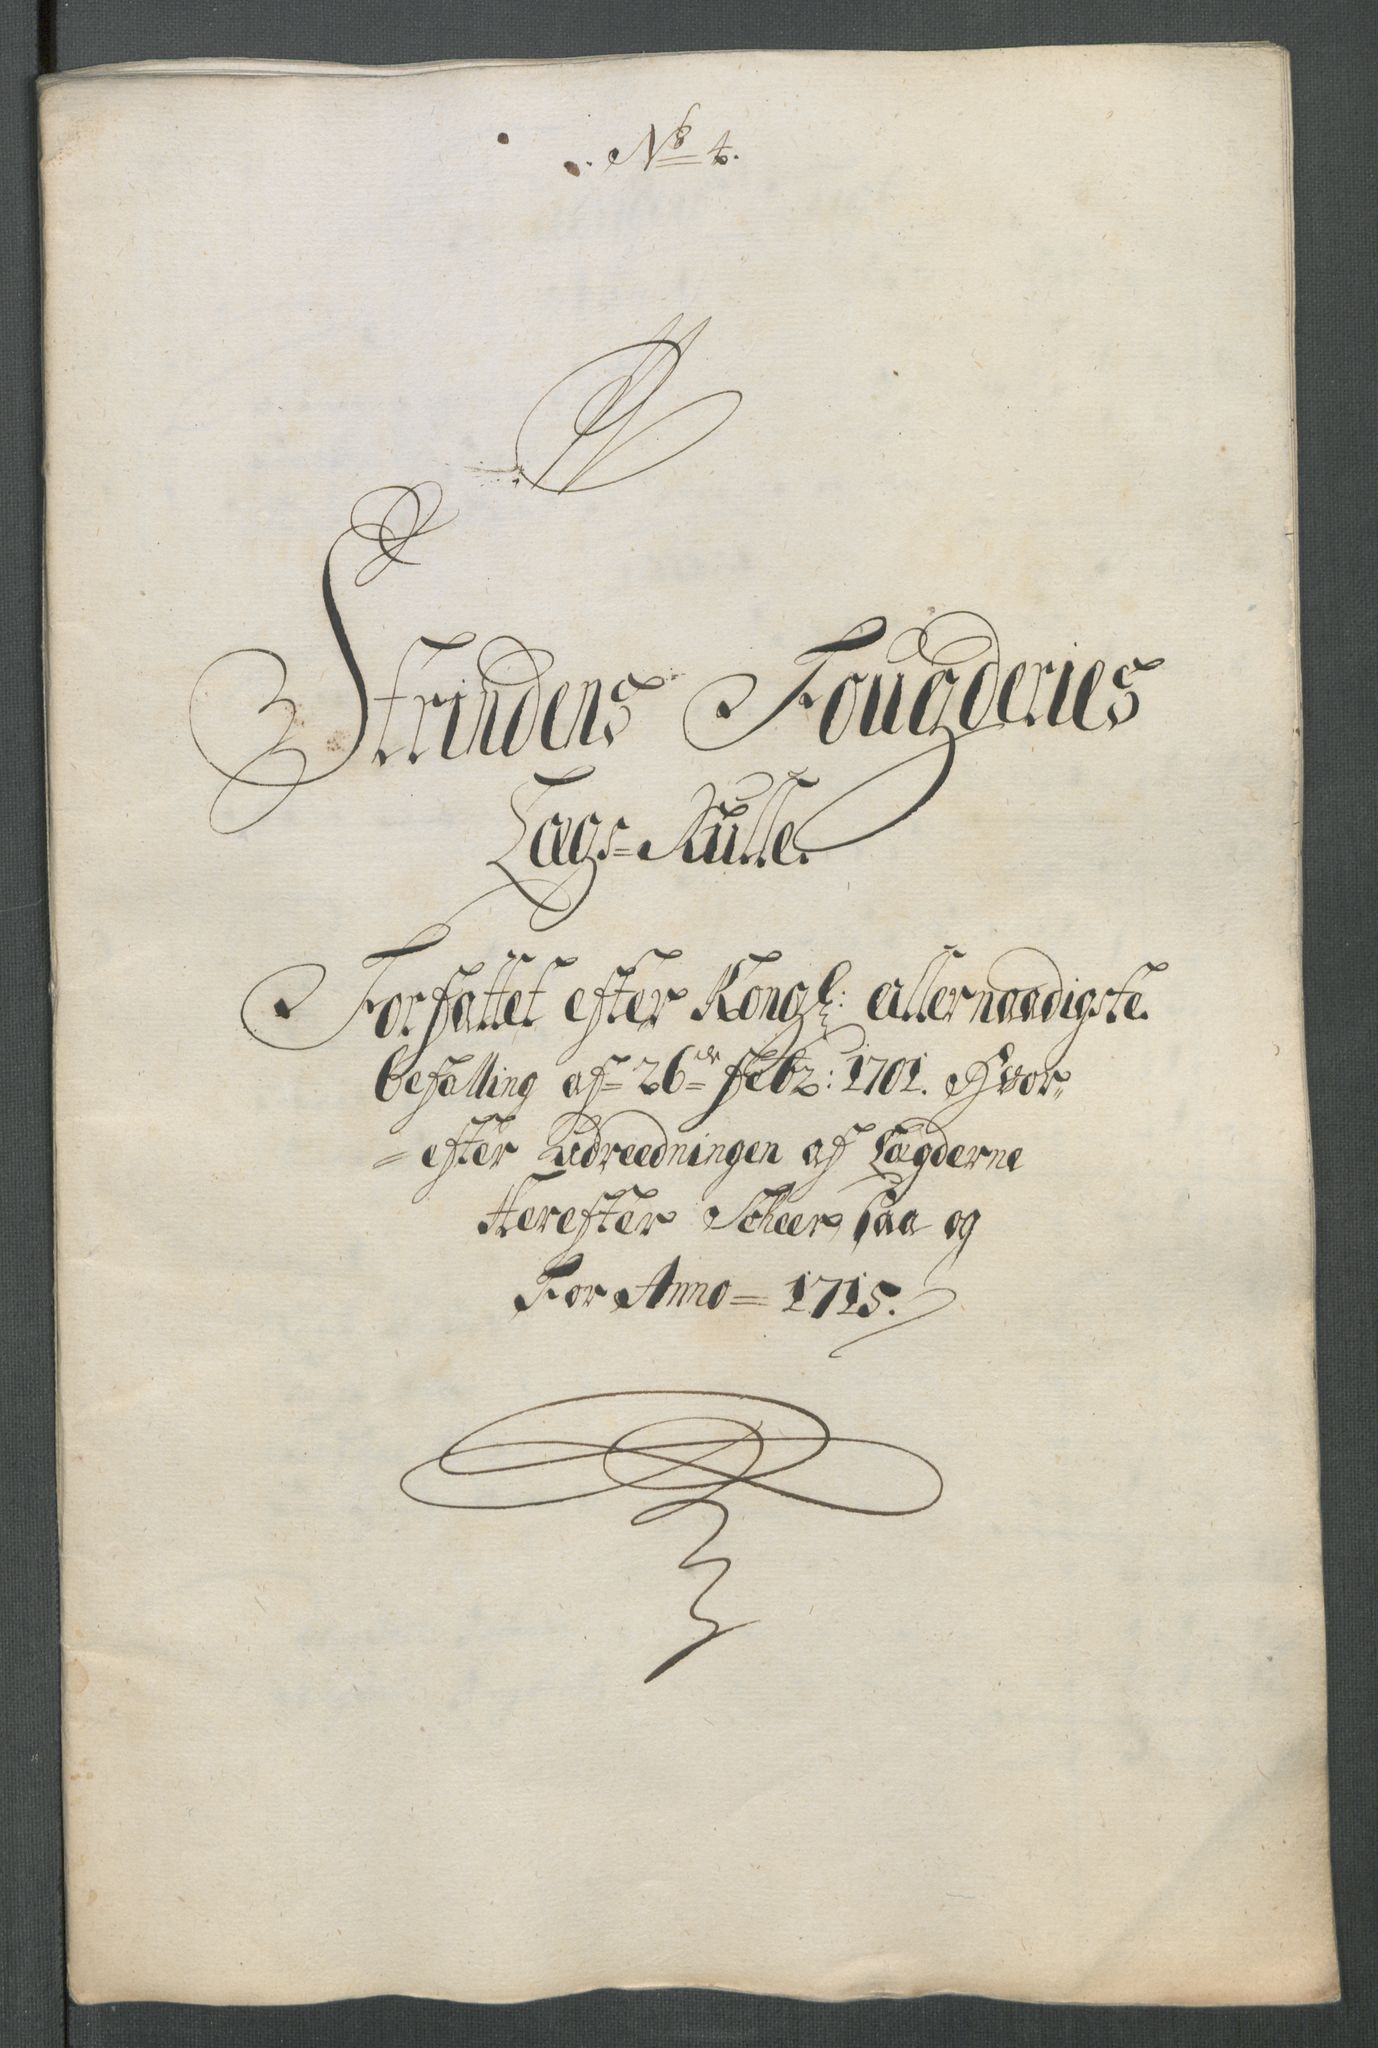 No 4.
Strindens Fougderies
Lægs=Rulle.
Forfattet efter Kongl: allernaadigste
befalling af 26de Febr: 1701. Hvor„
=efter Udreedningen af Lægderne
Herefter Skeer, saa og
For Anno= 1715.